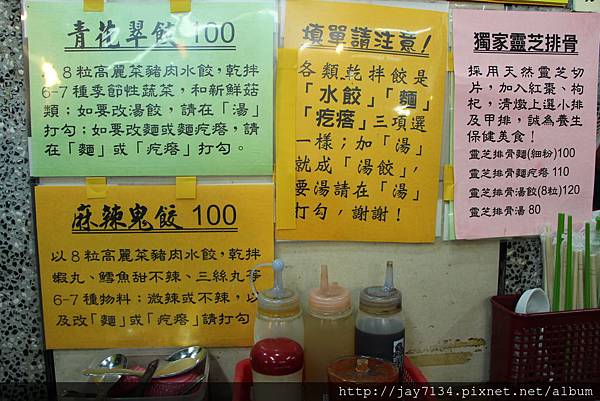 青花翠餃 100
以8粒高麗菜豬肉水餃，乾拌
6-7種季節性蔬菜，和新鮮菇
類；如要改湯餃，請在「湯」
打勾；如要改麵或麵疙瘩，請
在「麵」或「疙瘩」打勾。
麻辣鬼餃 100
以8粒高麗菜豬肉水餃，乾拌
蝦丸、鱈魚甜不辣、三絲丸等
6-7種物料；微辣或不辣，以
及改「麵」或「疙瘩」請打勾
填單請注意！
各類乾拌餃是
「水餃」「麵」
「疙瘩」三項選
一樣；加「湯」
就成「湯餃」，
要湯請在「湯」
打勾，謝謝！
獨家靈芝排骨
採用天然靈芝切
片，加入紅棗、枸
杞，清燉上選小排
及甲排，誠為養生
保健美食！
靈芝排骨麵(細粉)100
靈芝排骨麵疙瘩 110
靈芝排骨湯餃(8粒)120
靈芝排骨湯 80
http://jay7134.pixnet.net/album